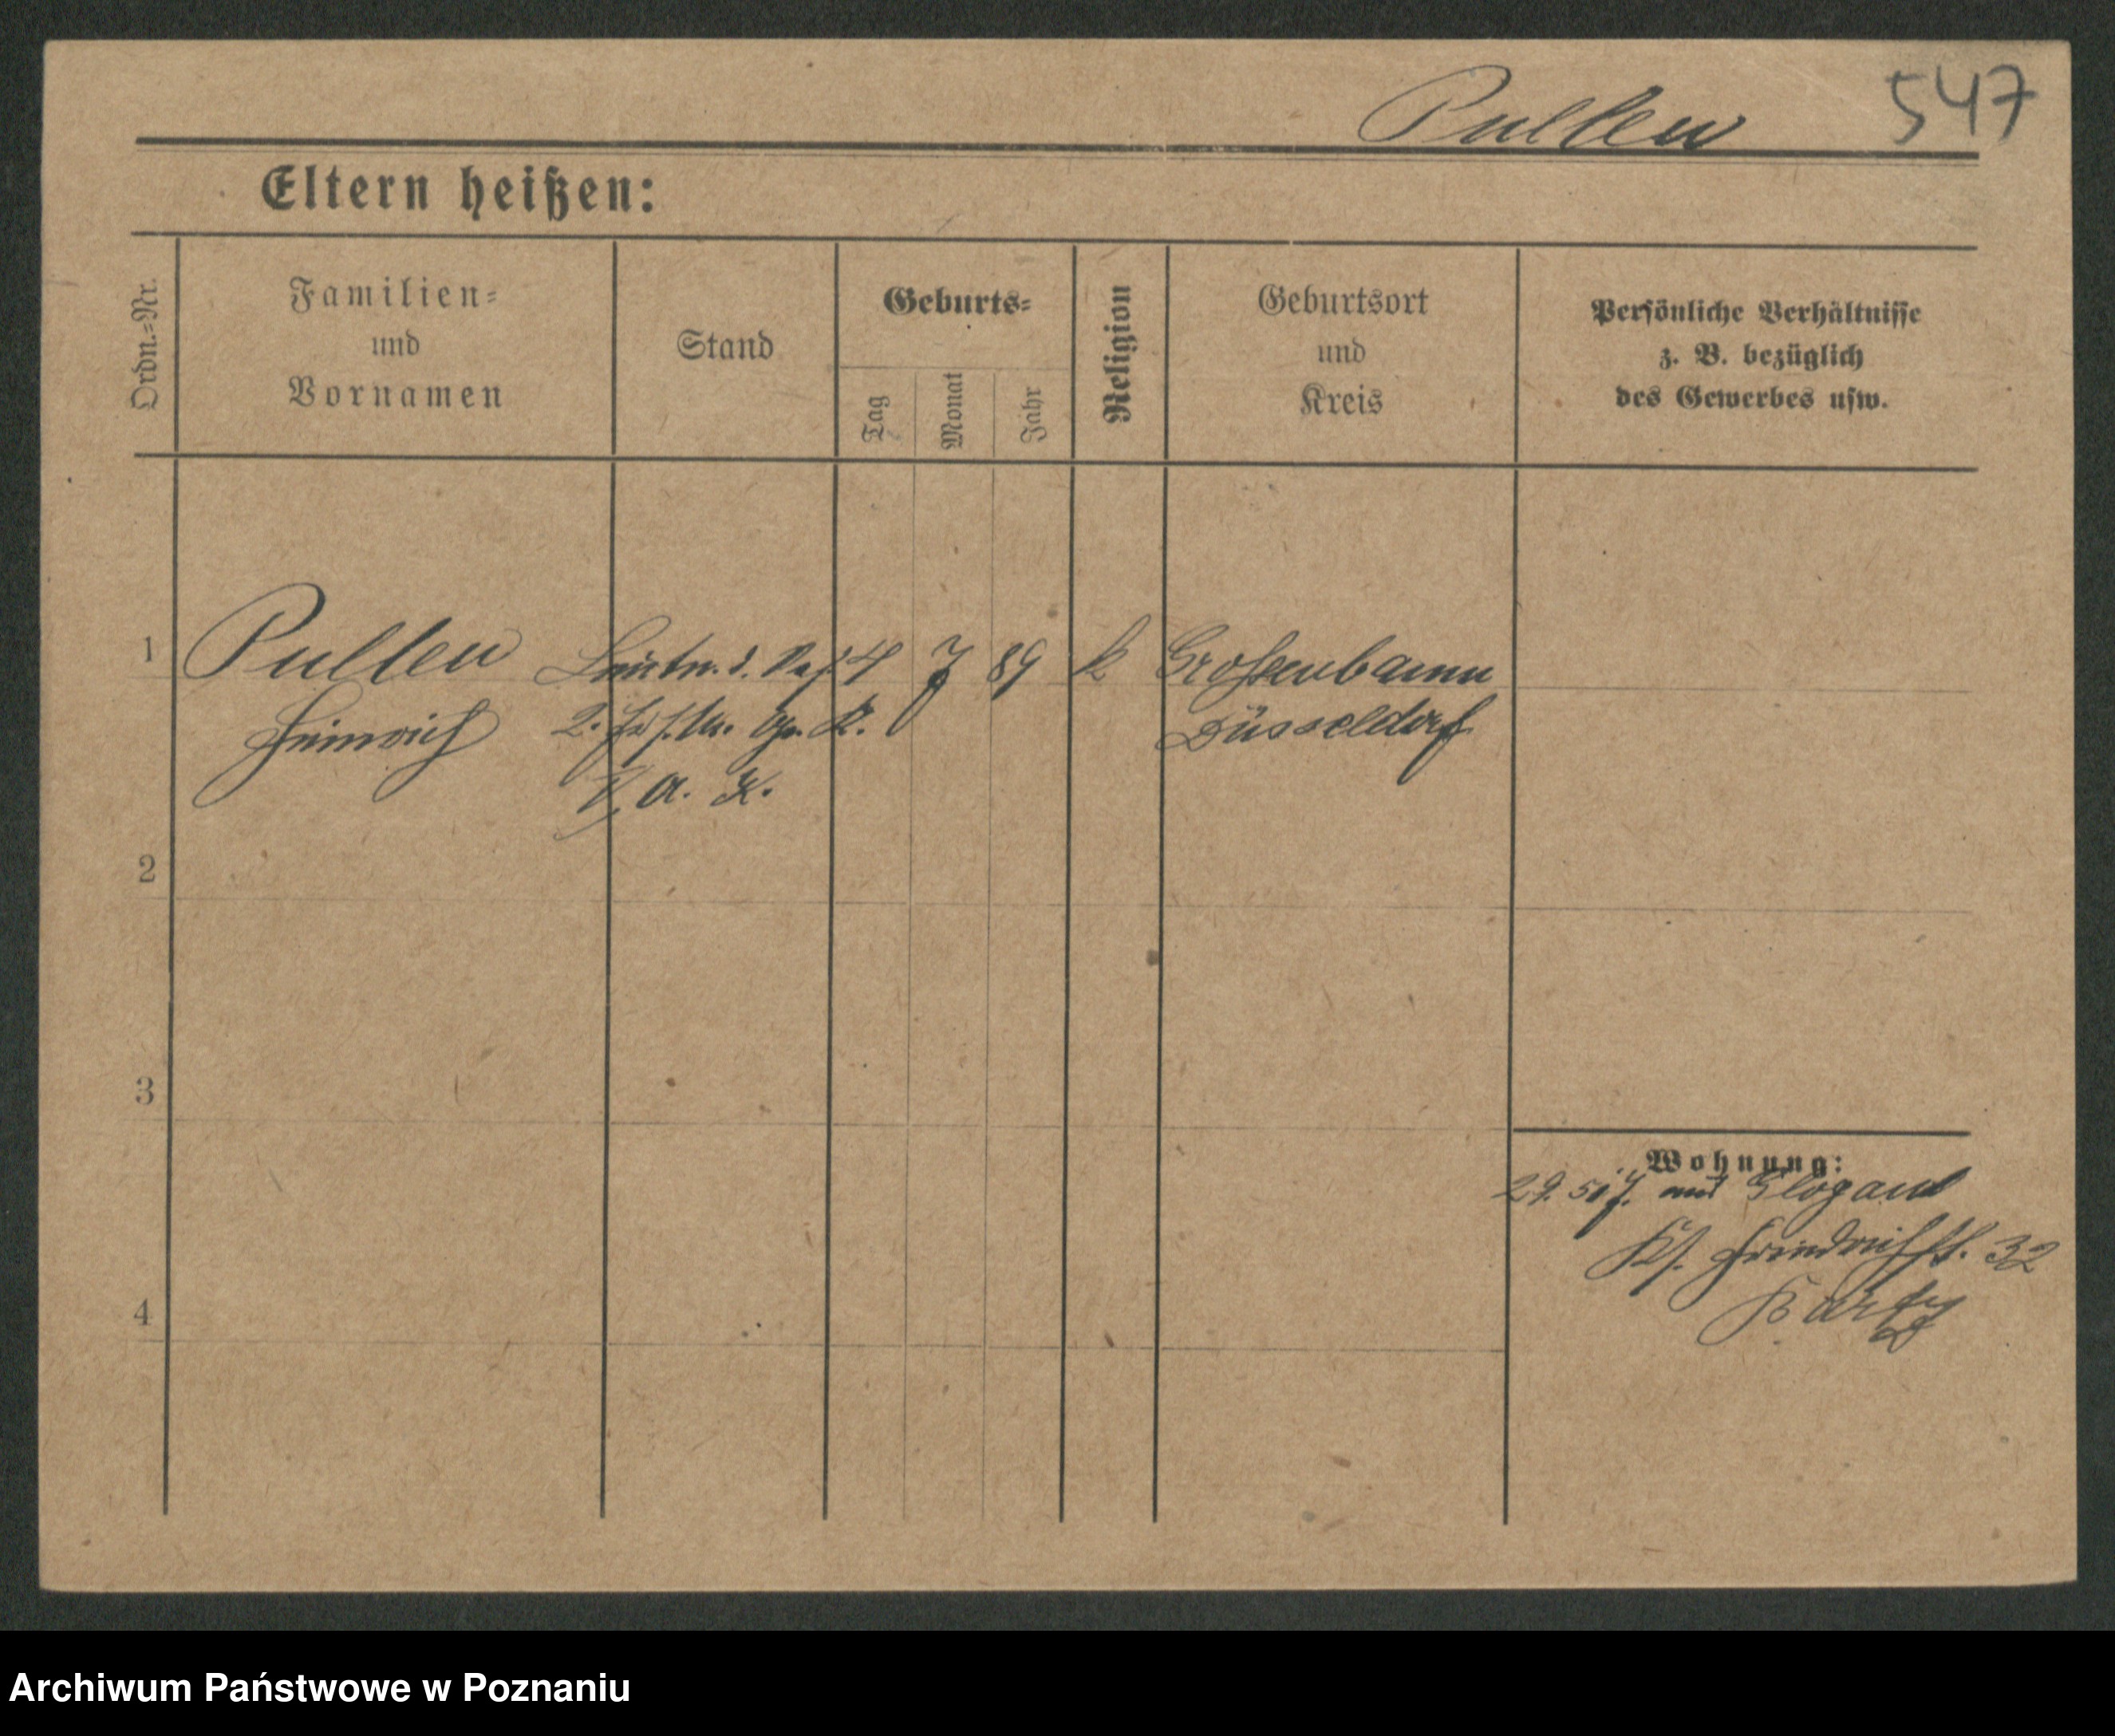 Pullen 547
Eltern heißen:
Ordn.=Nr.
Familien=
und
Vornamen
Stand
Geburts=
Tag
Monat
Jahr
Religion
Geburtsort
und
Kreis
Persönliche Verhältnisse
z. B. bezüglich
des Gewerbes usw.
1 Pullen Leutn. d. Res. 4 7 89 k Grossenbaum
Heinrich 2. Gr. R. Düsseldorf
V. A. K.
2
3
Wohnung:
29. 5. 17. aus Glogau
Ks. Friedrichstr. 32
4